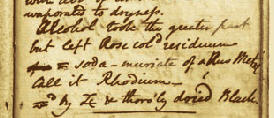 evaporated to dryness.
Alcohol took the greater part
but left Rose cold residuum
= soda-muriate of a New Metal
All it Rhodium
by Z & thoro'ly dried Black